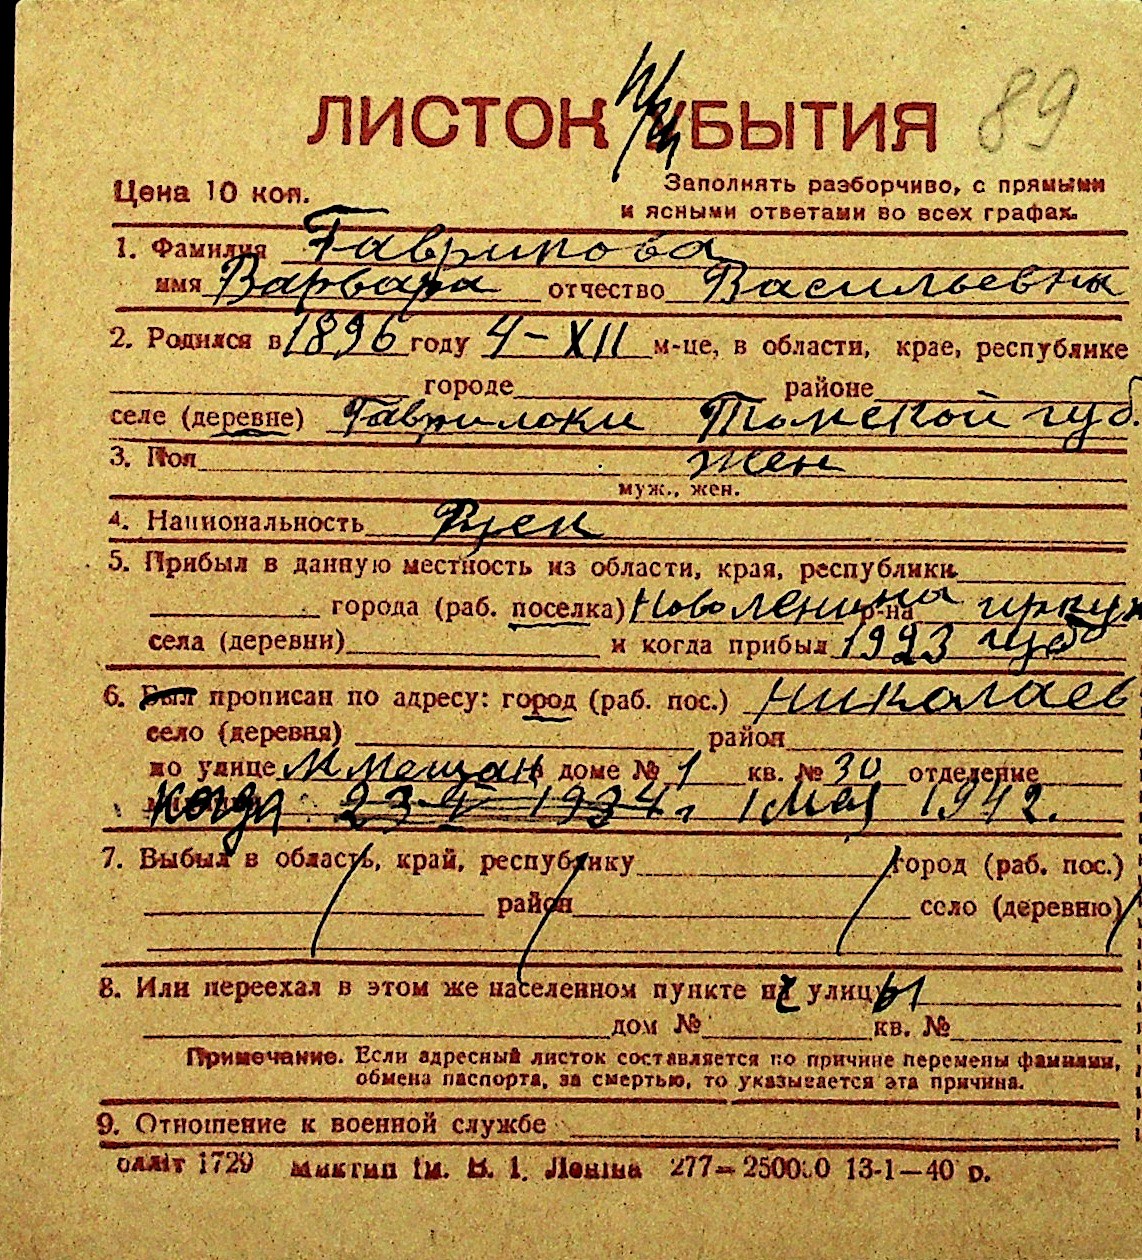 ЛИСТОК УБЫТИЯ 89
Цена 10 коп.
Заполнять разборчиво, с прямыми
и ясными ответами во всех графах.
1. Фамилия Гаврилова
имя Варвара отчество Васильевны
2. Родился в 1896 году 4-XII м-це, в области, крае, республике
городе районе
селе (деревне) Гавриловки Томской губ.
3. Пол жен
муж., жен.
4. Национальность
5. Прибыл в данную местность из области, края, республики
города (раб. поселка) р-на
села (деревни) и когда прибыл 1923 губ
6. Был прописан по адресу: город (раб. пос.) Николаев
село (деревня) район
по улице М Мещан доме № 1 кв. № 30 отделение
когда 23-V 1934 г. 1 Мая 1942.
7. Выбыл в область, край, республику город (раб. пос.)
район село (деревню)
8. Или переехал в этом же населенном пункте улицы
дом № кв. №
Примечание. Если адресный листок составляется по причине перемены фамилии,
обмена паспорта, за смертью, то указывается эта причина.
9. Отношение к военной службе
оллiт 1729 Миктип iм. В. I. Ленiна 277—250000 13-1—40 р.